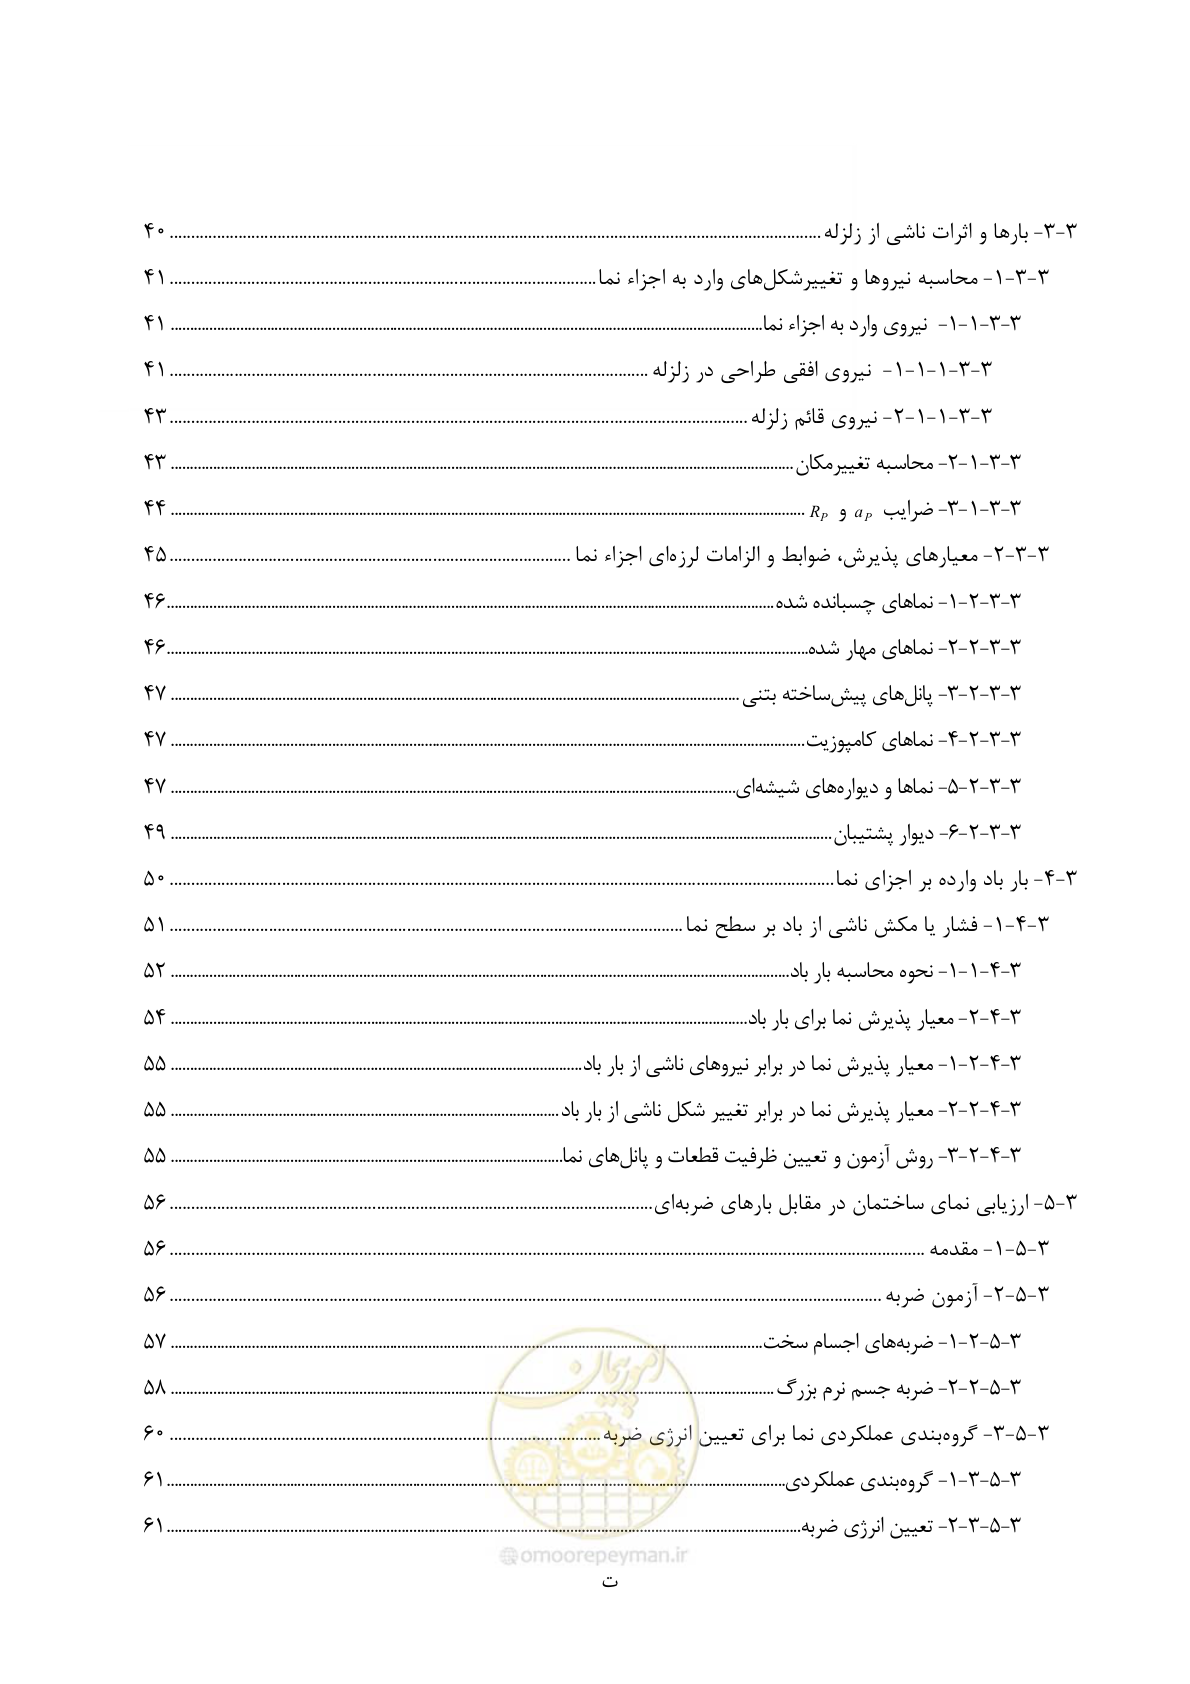 ۳-۳- بارها و اثرات ناشی از زلزله ........ ۴۰
۳-۳-۱- محاسبه نیروها و تغییرشکل‌های وارد به اجزاء نما ........ ۴۱
۳-۳-۱-۱- نیروی وارد به اجزاء نما ........ ۴۱
۳-۳-۱-۱-۱- نیروی افقی طراحی در زلزله ........ ۴۱
۳-۳-۱-۱-۲- نیروی قائم زلزله ........ ۴۳
۳-۳-۱-۲- محاسبه تغییرمکان ........ ۴۳
۳-۳-۱-۳- ضرایب a_P و R_P ........ ۴۴
۳-۳-۲- معیارهای پذیرش، ضوابط و الزامات لرزه‌ای اجزاء نما ........ ۴۵
۳-۳-۲-۱- نماهای چسبانده شده ........ ۴۶
۳-۳-۲-۲- نماهای مهار شده ........ ۴۶
۳-۳-۲-۳- پانل‌های پیش‌ساخته بتنی ........ ۴۷
۳-۳-۲-۴- نماهای کامپوزیت ........ ۴۷
۳-۳-۲-۵- نماها و دیواره‌های شیشه‌ای ........ ۴۷
۳-۳-۲-۶- دیوار پشتیبان ........ ۴۹
۳-۴- بار باد وارده بر اجزای نما ........ ۵۰
۳-۴-۱- فشار یا مکش ناشی از باد بر سطح نما ........ ۵۱
۳-۴-۱-۱- نحوه محاسبه بار باد ........ ۵۲
۳-۴-۲- معیار پذیرش نما برای بار باد ........ ۵۴
۳-۴-۲-۱- معیار پذیرش نما در برابر نیروهای ناشی از بار باد ........ ۵۵
۳-۴-۲-۲- معیار پذیرش نما در برابر تغییر شکل ناشی از بار باد ........ ۵۵
۳-۴-۲-۳- روش آزمون و تعیین ظرفیت قطعات و پانل‌های نما ........ ۵۵
۳-۵- ارزیابی نمای ساختمان در مقابل بارهای ضربه‌ای ........ ۵۶
۳-۵-۱- مقدمه ........ ۵۶
۳-۵-۲- آزمون ضربه ........ ۵۶
۳-۵-۲-۱- ضربه‌های اجسام سخت ........ ۵۷
۳-۵-۲-۲- ضربه جسم نرم بزرگ ........ ۵۸
۳-۵-۳- گروه‌بندی عملکردی نما برای تعیین انرژی ضربه ........ ۶۰
۳-۵-۳-۱- گروه‌بندی عملکردی ........ ۶۱
۳-۵-۳-۲- تعیین انرژی ضربه ........ ۶۱
امور پیمان
@omoorepeyman.ir
ت